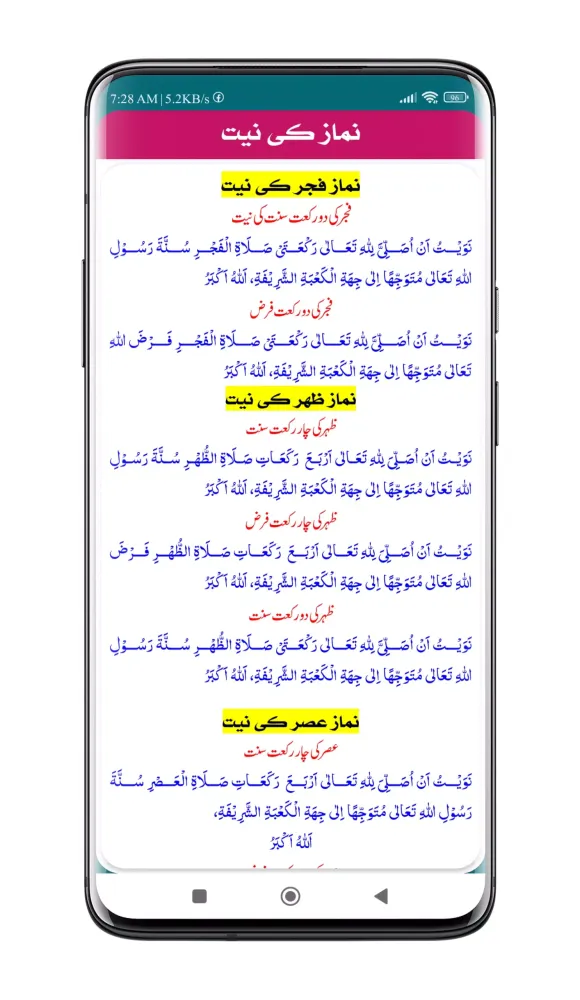 7:28 AM | 5.2KB/s
96
نماز کی نیت
نماز فجر کی نیت
فجر کی دو رکعت سنت کی نیت
نَوَیْتُ اَنْ اُصَلِّیَّ لِلّٰہِ تَعَالٰی رَکْعَتَیْ صَلَاۃِ الْفَجْرِ سُنَّۃَ رَسُوْلِ
اللّٰہِ تَعَالٰی مُتَوَجِّھًا اِلٰی جِھَۃِ الْکَعْبَۃِ الشَّرِیْفَۃِ، اَللّٰہُ اَکْبَرُ
فجر کی دو رکعت فرض
نَوَیْتُ اَنْ اُصَلِّیَّ لِلّٰہِ تَعَالٰی رَکْعَتَیْ صَلَاۃِ الْفَجْرِ فَرْضَ اللّٰہِ
تَعَالٰی مُتَوَجِّھًا اِلٰی جِھَۃِ الْکَعْبَۃِ الشَّرِیْفَۃِ، اَللّٰہُ اَکْبَرُ
نماز ظهر کی نیت
ظہر کی چار رکعت سنت
نَوَیْتُ اَنْ اُصَلِّیَ لِلّٰہِ تَعَالٰی اَرْبَعَ رَکَعَاتِ صَلَاۃِ الظُّھْرِ سُنَّۃَ رَسُوْلِ
اللّٰہِ تَعَالٰی مُتَوَجِّھًا اِلٰی جِھَۃِ الْکَعْبَۃِ الشَّرِیْفَۃِ، اَللّٰہُ اَکْبَرُ
ظہر کی چار رکعت فرض
نَوَیْتُ اَنْ اُصَلِّیَ لِلّٰہِ تَعَالٰی اَرْبَعَ رَکَعَاتِ صَلَاۃِ الظُّھْرِ فَرْضَ
اللّٰہِ تَعَالٰی مُتَوَجِّھًا اِلٰی جِھَۃِ الْکَعْبَۃِ الشَّرِیْفَۃِ، اَللّٰہُ اَکْبَرُ
ظہر کی دو رکعت سنت
نَوَیْتُ اَنْ اُصَلِّیَ لِلّٰہِ تَعَالٰی رَکْعَتَیْ صَلَاۃِ الظُّھْرِ سُنَّۃَ رَسُوْلِ
اللّٰہِ تَعَالٰی مُتَوَجِّھًا اِلٰی جِھَۃِ الْکَعْبَۃِ الشَّرِیْفَۃِ، اَللّٰہُ اَکْبَرُ
نماز عصر کی نیت
عصر کی چار رکعت سنت
نَوَیْتُ اَنْ اُصَلِّیَ لِلّٰہِ تَعَالٰی اَرْبَعَ رَکَعَاتِ صَلَاۃِ الْعَصْرِ سُنَّۃَ
رَسُوْلِ اللّٰہِ تَعَالٰی مُتَوَجِّھًا اِلٰی جِھَۃِ الْکَعْبَۃِ الشَّرِیْفَۃِ،
اَللّٰہُ اَکْبَرُ